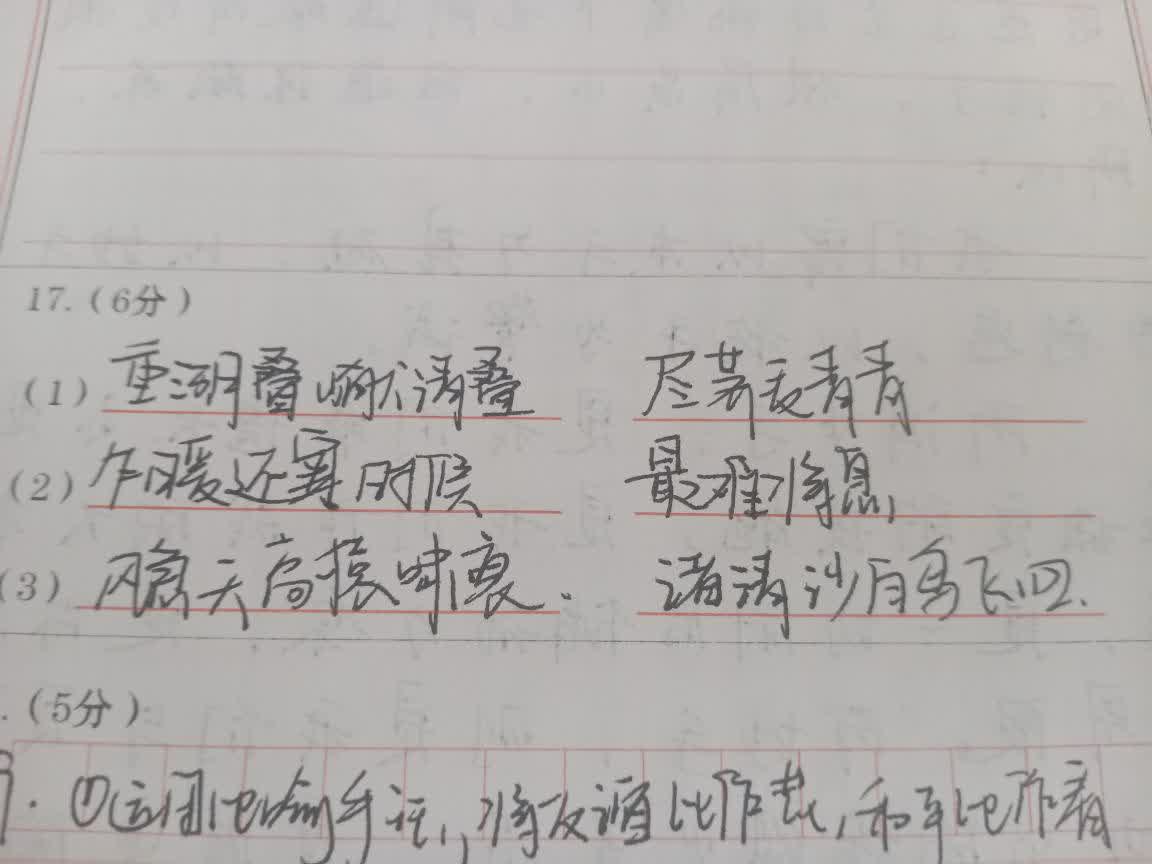 17.(6分)
(1) 重湖叠巘清叠 尽荠麦青青
(2) 乍暖还寒时候 最难将息
(3) 风急天高猿啸哀. 渚清沙白鸟飞回.
.(5分)
①运用比喻手法,将反 比作 ,和平比作春